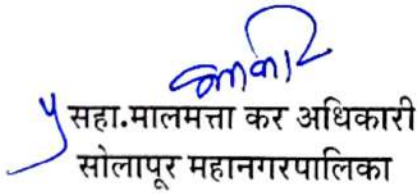 सहा.मालमत्ता कर अधिकारी
सोलापूर महानगरपालिका